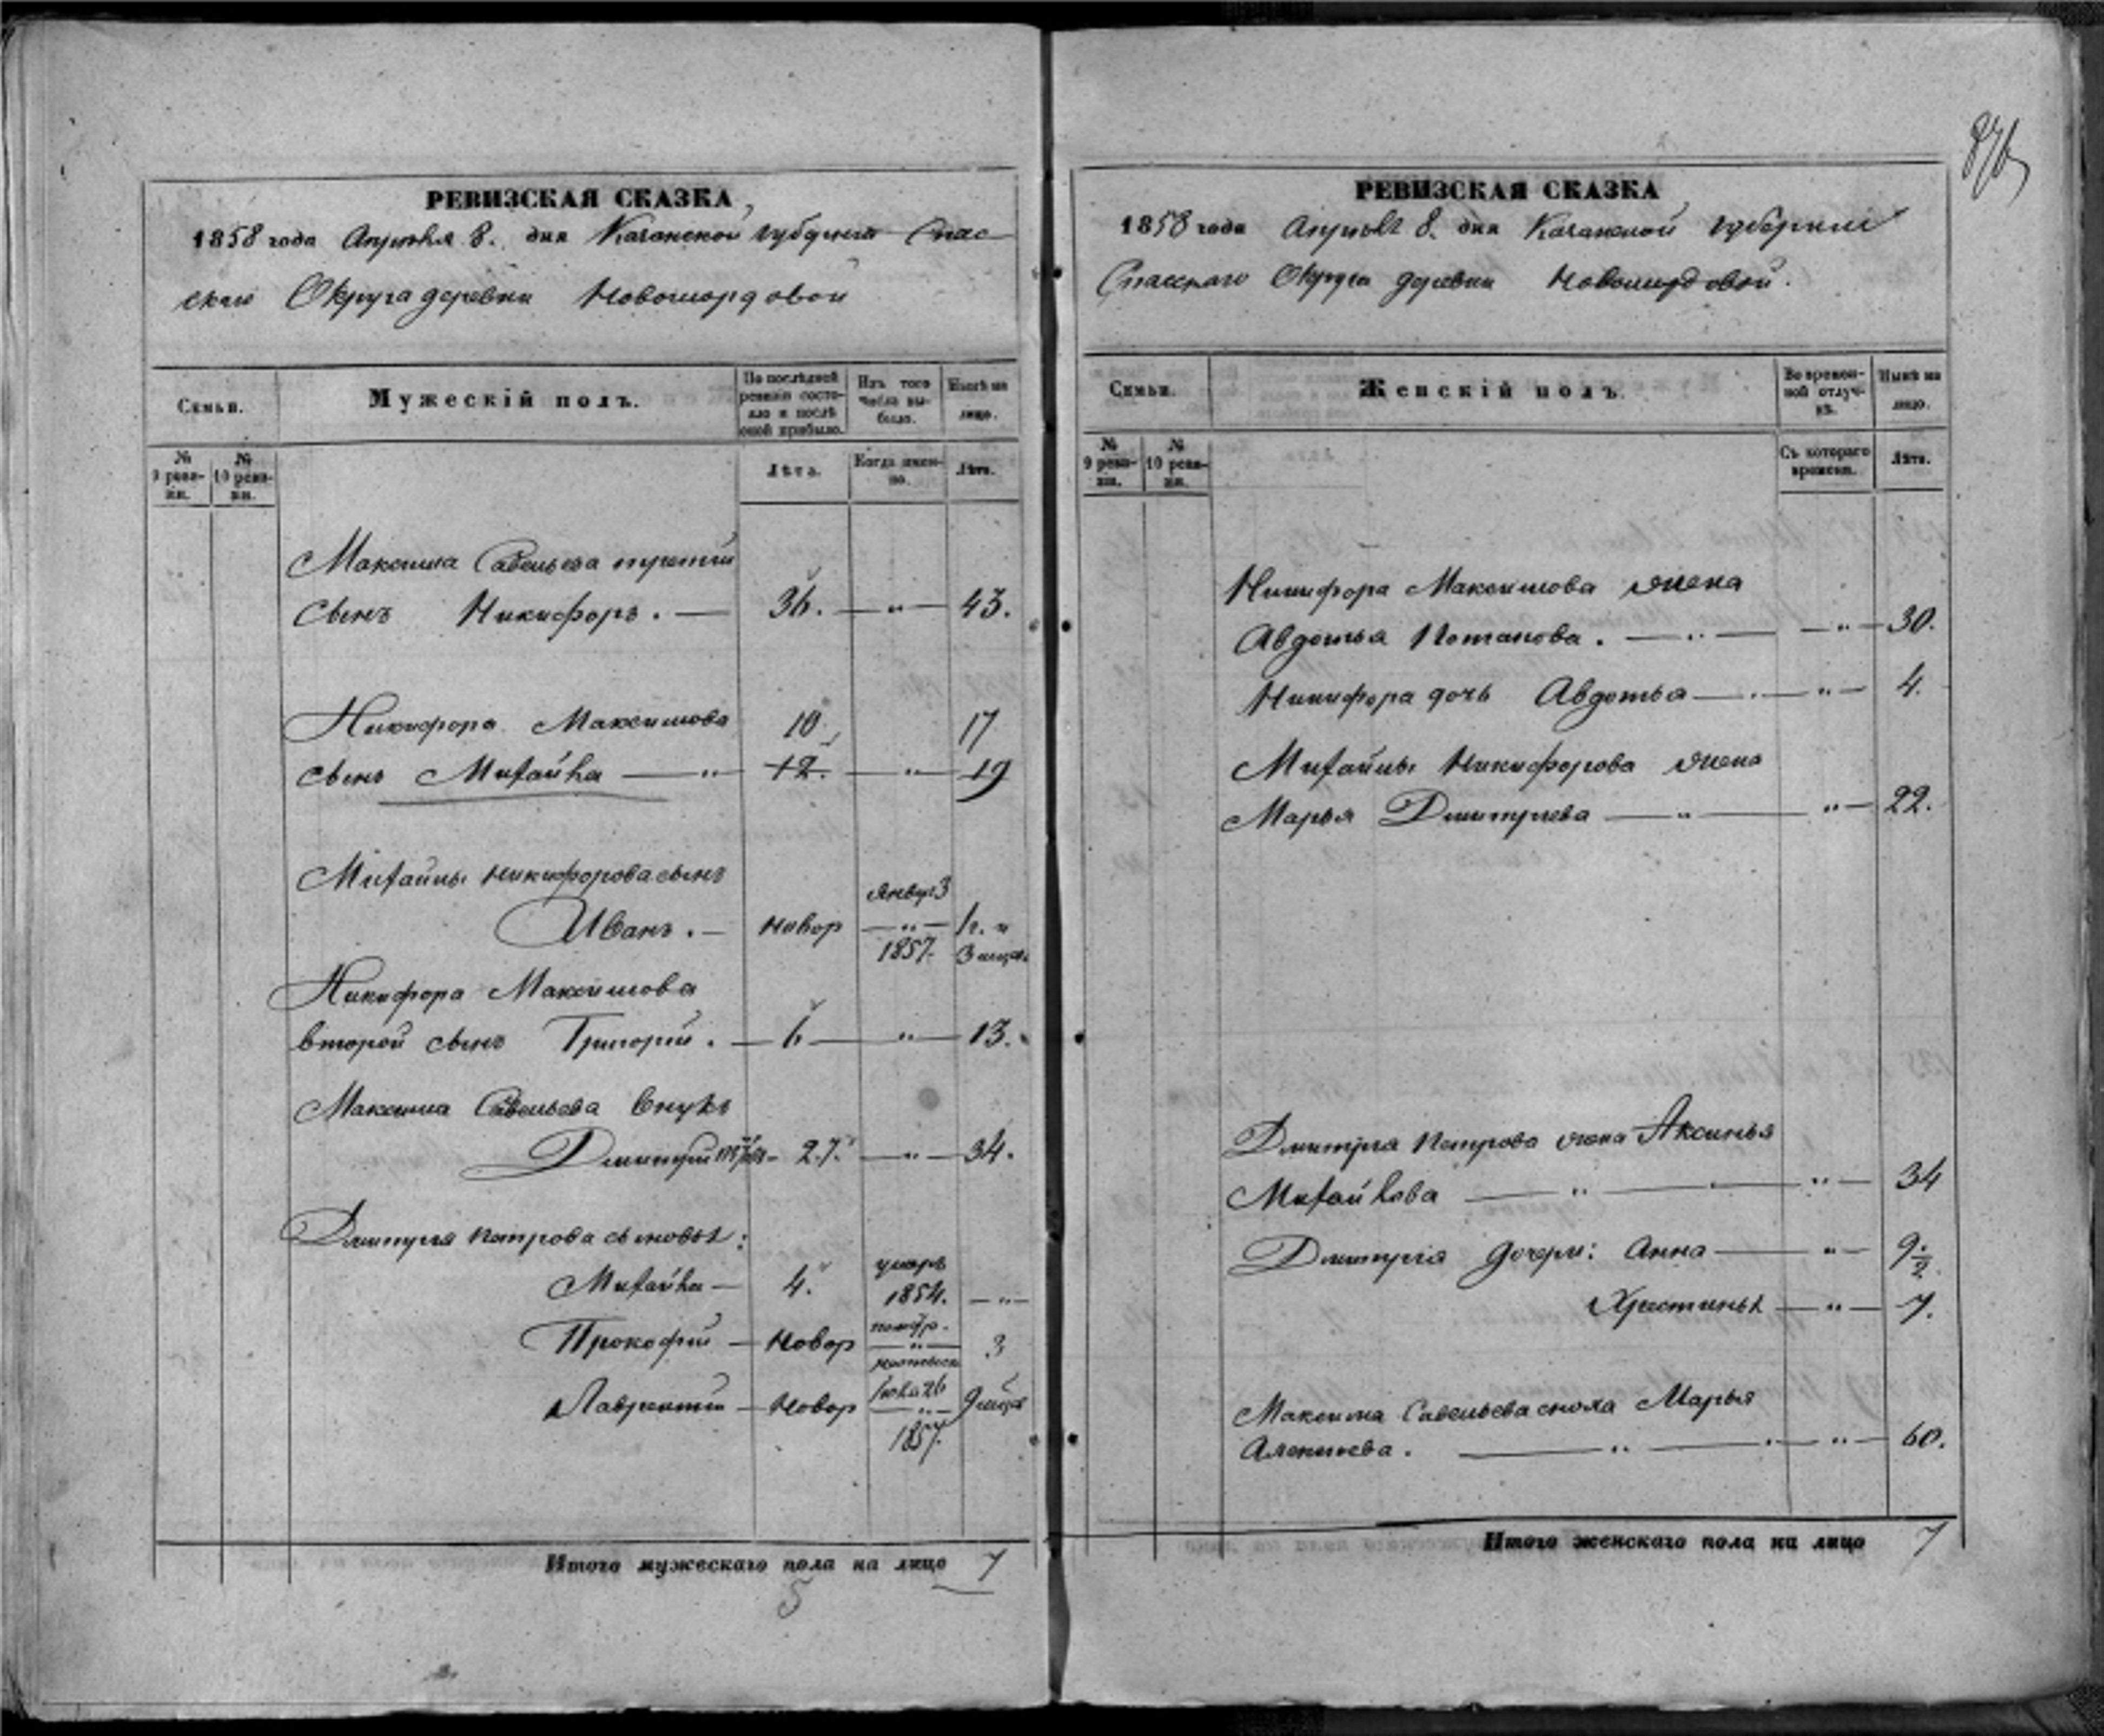 РЕВИЗСКАЯ СКАЗКА
1858 года Апреля 8. дня Казанской губернии Спас
скаго Округа деревни Новомордовой
Семьи.
Мужескій полъ.
По послѣдней ревизіи состояло и послѣ оной прибыло.
Изъ того числа выбыло.
Нынѣ на лицо.
№ 9 ревизіи.
№ 10 ревизіи.
Лѣта.
Когда именно.
Лѣта.
Максима Савельева третій
сынъ Никифоръ. — 36. — „ — 43.
Никифора Максимова 10. 17
сынъ Михайла — „ — 12. — „ — 19
Михайлы Никифорова сынъ
Иванъ. — новор январ 3 — „ — 1857. 1 г. и 3 месяц.
Никифора Максимова
второй сынъ Григорій. — 6 — „ — 13.
Максима Савельева внукъ
Дмитрій Петровъ — 27. — „ — 34.
Дмитрія Петрова сыновья:
Михайла — 4. умеръ 1854. — „ —
Прокофій — Новор — „ — 3
Лаврентій — Новор 26 — „ — 1857. 9 месяц
Итого мужескаго пола на лицо 7
5
876
РЕВИЗСКАЯ СКАЗКА
1858 года Апреля 8. дня Казанской губерніи
Спасскаго Округа деревни Новомордовой.
Семьи.
Женскій полъ.
Во временной отлучкѣ.
Нынѣ на лицо.
№ 9 ревизіи.
№ 10 ревизіи.
Съ котораго времени.
Лѣта.
Никифора Максимова жена
Авдотья Потапова. — „ — — „ — 30.
Никифора дочь Авдотья — . — „ — 4.
Михайлы Никифорова жена
Марья Дмитриева — „ — „ — 22.
Дмитрія Петрова жена Аксинья
Михайлова — „ — „ — 34
Дмитрія дочери: Анна — „ — 9 1/2
Христинья — „ — 7.
Максима Савельева сноха Марья
. — „ — . — „ — 60.
Итого женскаго пола на лицо 7